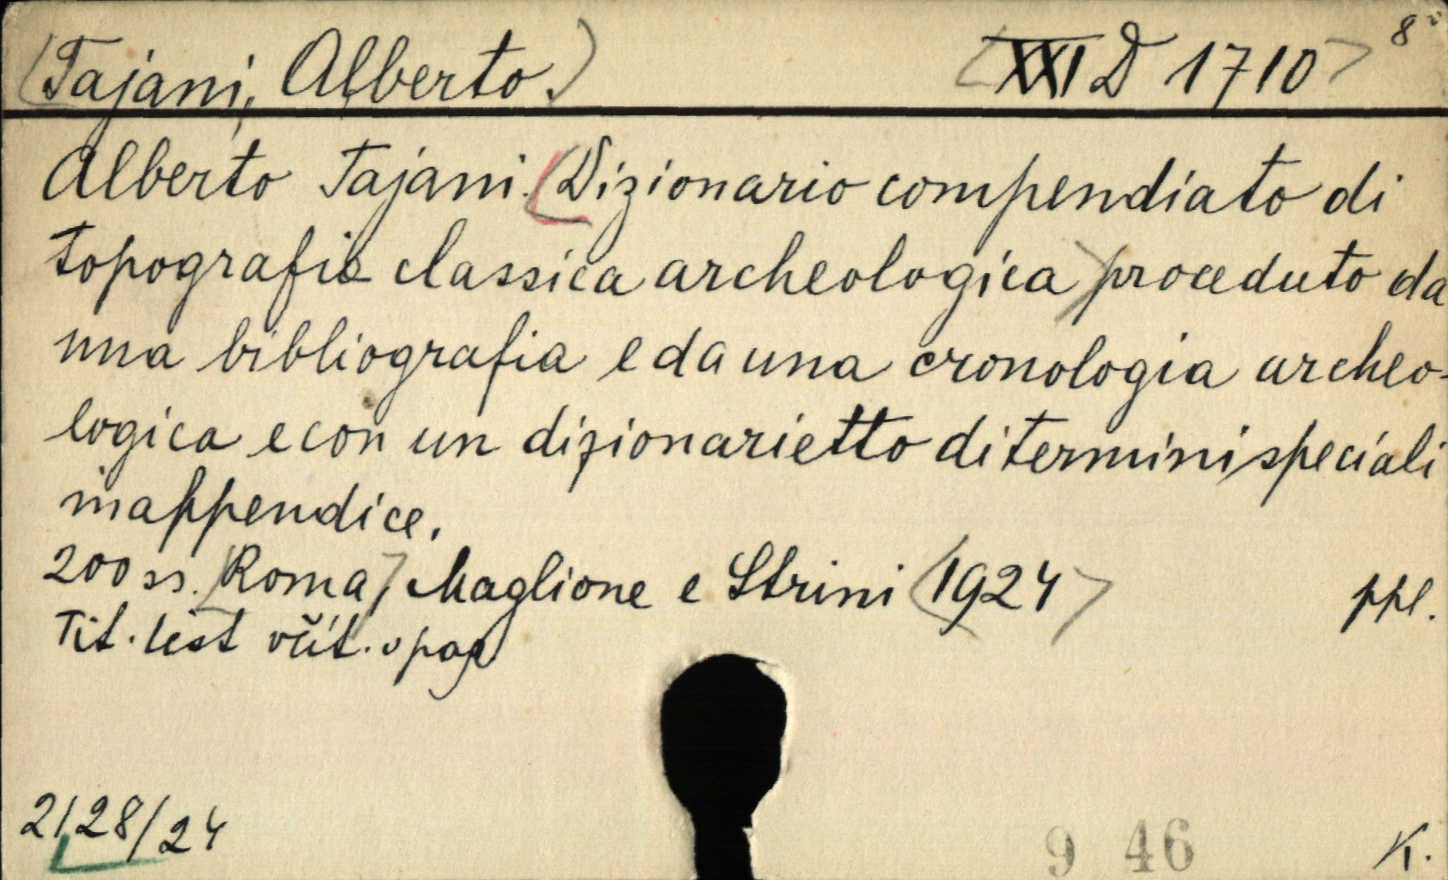 (Tajani, Alberto.) (XXI D 1710) 8°
Alberto Tajani. (Dizionario compendiato di
topografia classica archeologica) proceduto da
una bibliografia e da una cronologia archeo-
logica e con un dizionarietto di termini speciali
in appendice.
200 ss. (Roma) Maglione e Strini (1924) ppl.
Tit. list včít. v pag
2128/24 9 46 K.